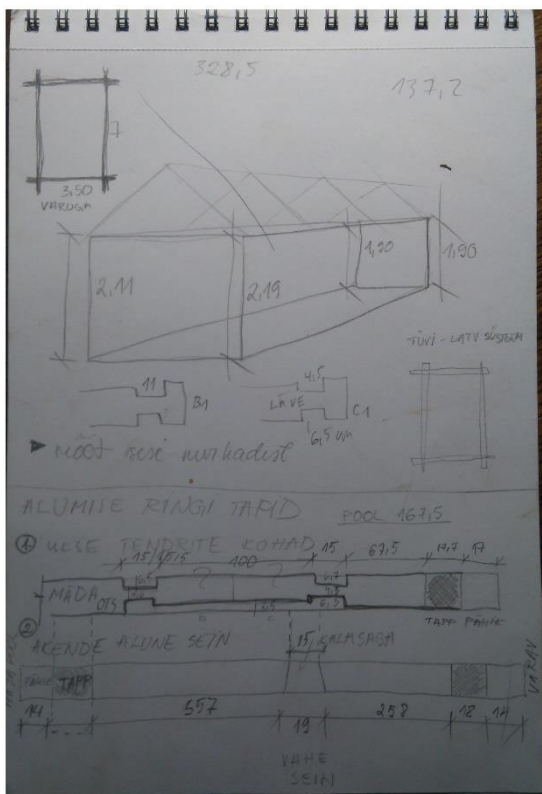 328,5
137,2
7
3,50
VARUGA
2,11
2,19
1,90
1,90
TÜVI - LATV SÜSTEEM
11
B1
4,5
LÄVE
C1
6,5
MÕÕT sisi nurkadest
ALUMISE RINGI TAPID
POOL 167,5
1 UKSE TENDRITE KOHAD
15
100
15
67,5
17
MÄDA
OTS
TAPP
2
AKENDE ALUNE SEIN
15
KALASABA
TAPP
VÄRAV
14
557
19
258
18
14
VAHE
SEIN